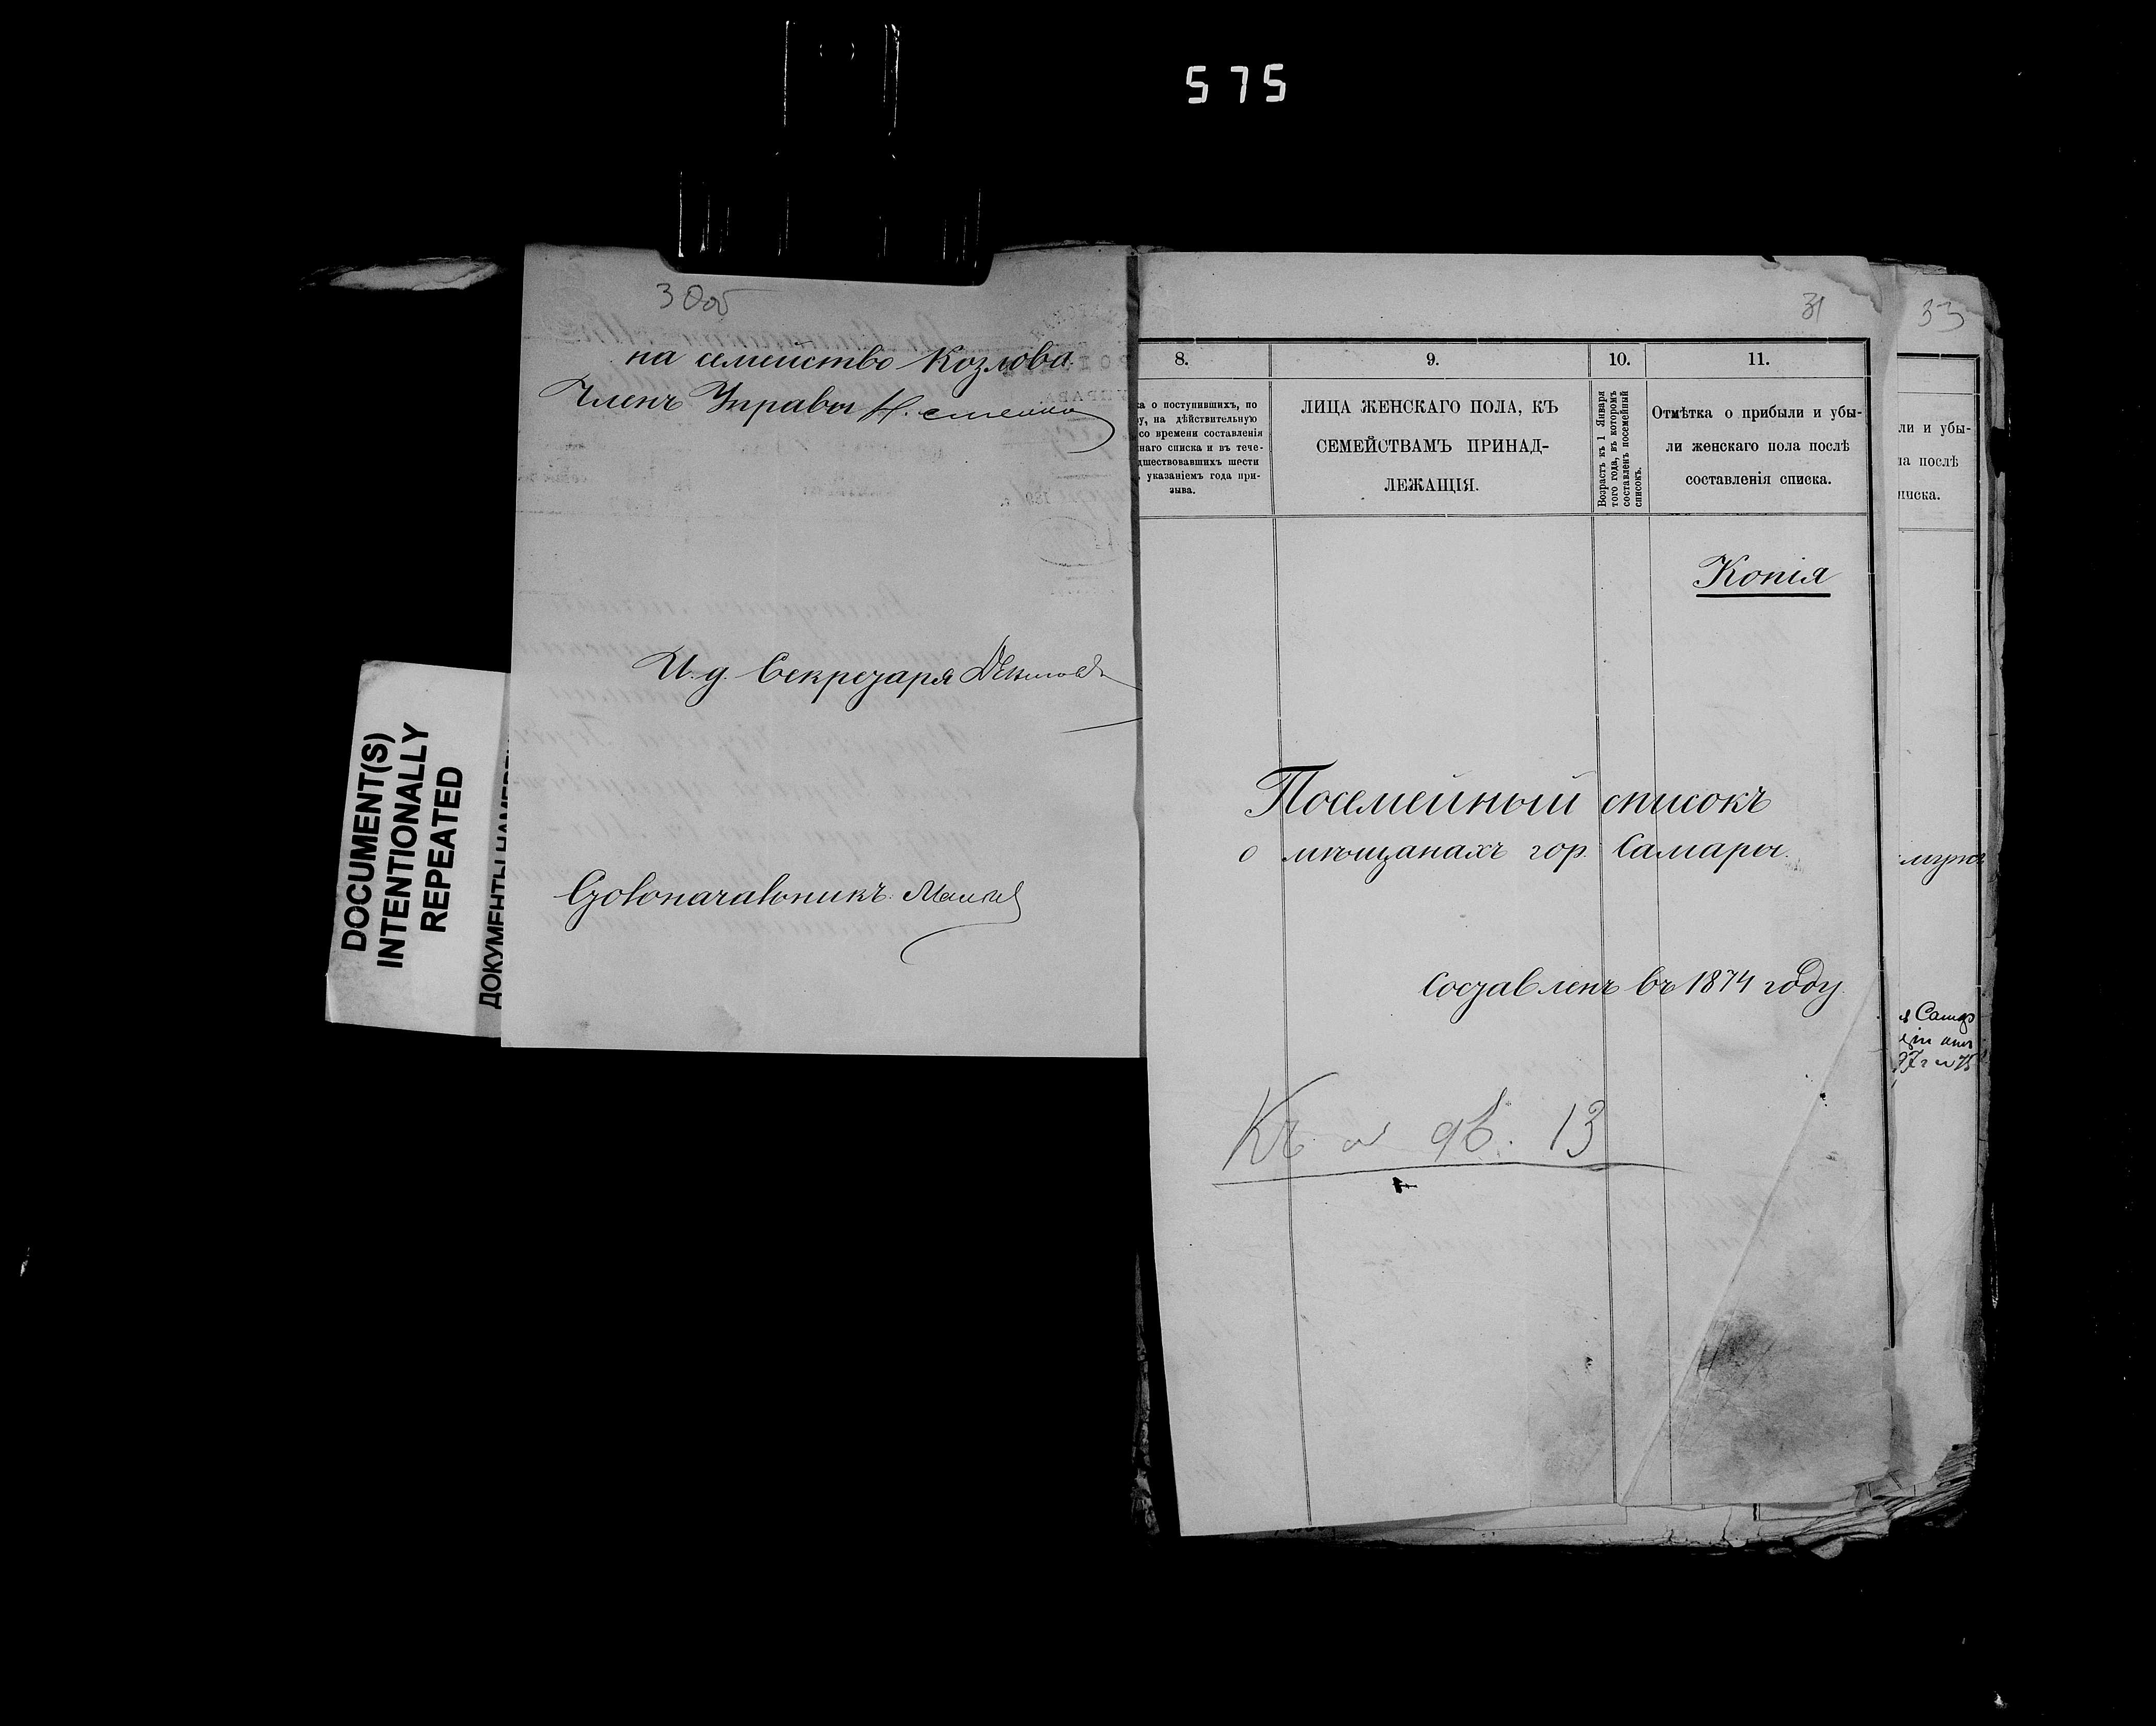 575
30об
на семейство Козлова.
Членъ Управы
И. д. Секретаря
Столоначальникъ
DOCUMENT(S)
INTENTIONALLY
REPEATED
31
8.
9.
10.
11.
о поступившихъ, по
на дѣйствительную
со времени составленія
списка и въ тече-
шести
указаніемъ года при-
зыва.
ЛИЦА ЖЕНСКАГО ПОЛА, КЪ
СЕМЕЙСТВАМЪ ПРИНАД-
ЛЕЖАЩІЯ.
Возрастъ къ 1 Января
того года, въ которомъ
составленъ посемейный
списокъ.
Отмѣтка о прибыли и убы-
ли женскаго пола послѣ
составленія списка.
Копія
Посемейный списокъ
о мѣщанахъ гор. Самары.
Составленъ въ 1874 году.
13
33
ли и убы-
послѣ